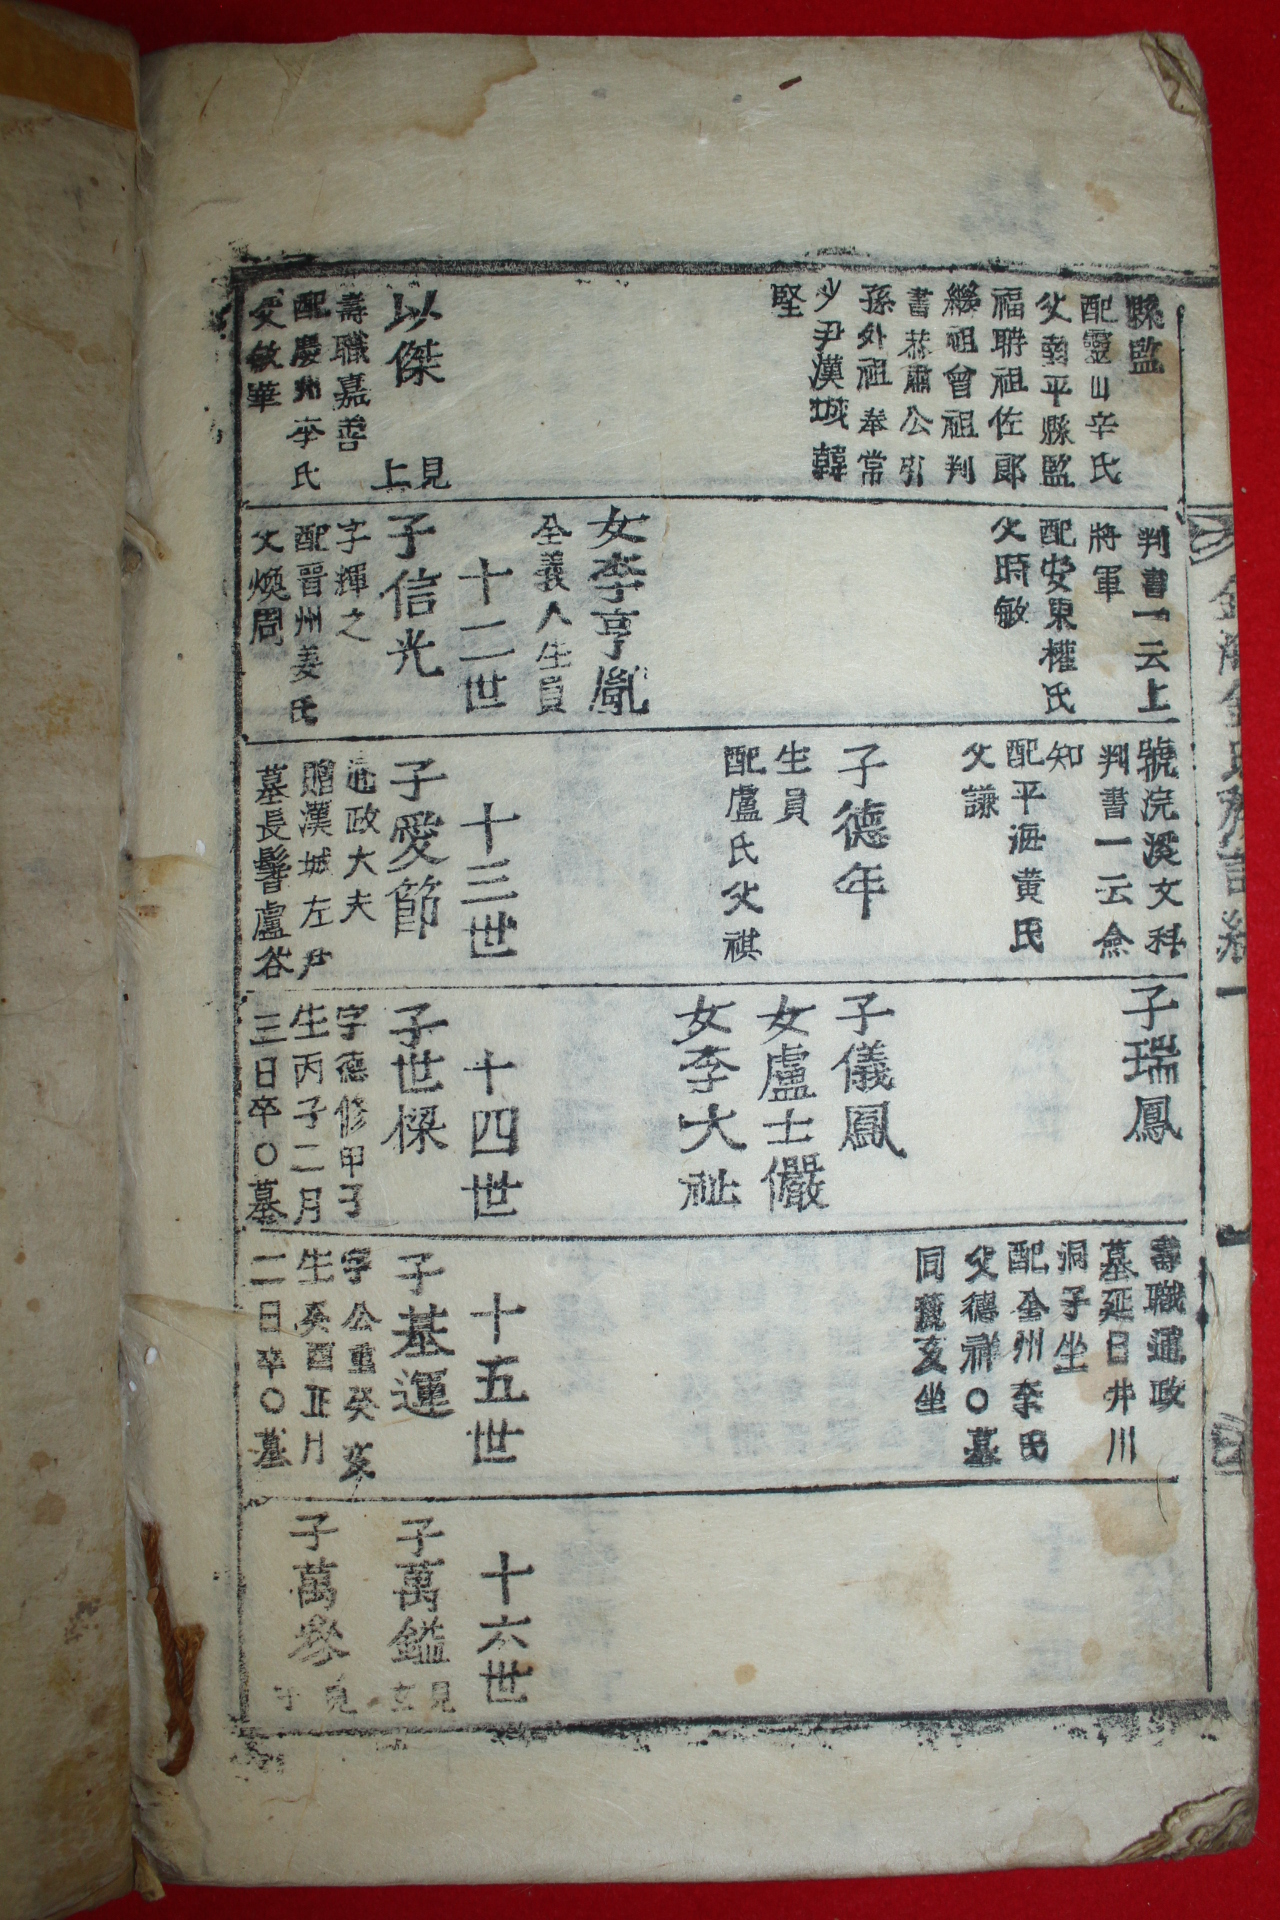 縣監
配靈山辛氏
父朝平縣監
福聘祖佐郞
繼祖曾祖判
書恭肅公引
孫外祖奉常
少尹漢城韓
堅
以傑
見
上
壽職嘉善
配慶州李氏
父敏華
判書一云上
將軍
配安東權氏
父時敏
女李亨胤
全義人生員
十二世
子信光
字輝之
配晋州姜氏
父煥周
號浣溪文科
判書一云僉
知
配平海黃氏
父謙
子德年
生員
配盧氏父祺
十三世
子愛節
通政大夫
贈漢城左尹
墓長鬐盧谷
子瑞鳳
子儀鳳
女盧士儼
女李大祉
十四世
子世樑
字德修甲子
生丙子二月
三日卒○墓
壽職通政
墓延日井川
洞子坐
配全州李氏
父德祥○墓
同麓亥坐
十五世
子基運
字公重癸亥
生癸酉正月
二日卒○墓
十六世
子萬鎰
見
子萬
見
金海金氏族譜 一